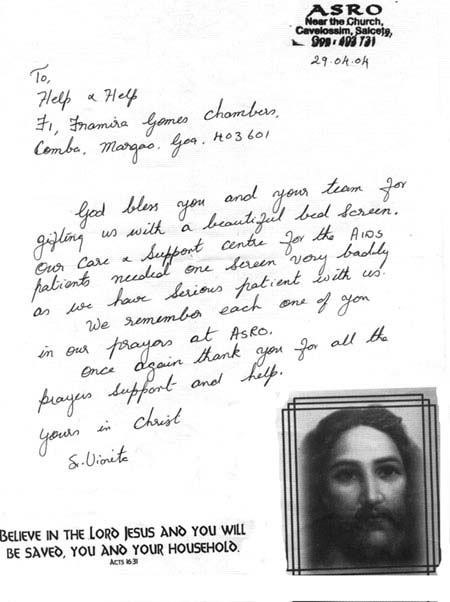 ASRO
Near the Church,
Cavelossim, Salcete,
Goa - 403 731
29.04.04
To,
Help & Help
F1, Framira Gomes Chambers,
Comba, Margao. Goa. 403601
God bless you and your team for
gifting us with a beautiful bed screen.
Our Care & Support centre for the AIDS
patients needed one screen very baddly
as we have serious patient with us.
We remember each one of you
in our prayers at ASRO.
Once again thank you for all the
prayers support and help.
Yours in Christ
Sr. Vinita
BELIEVE IN THE LORD JESUS AND YOU WILL
BE SAVED, YOU AND YOUR HOUSEHOLD.
ACTS 16:31